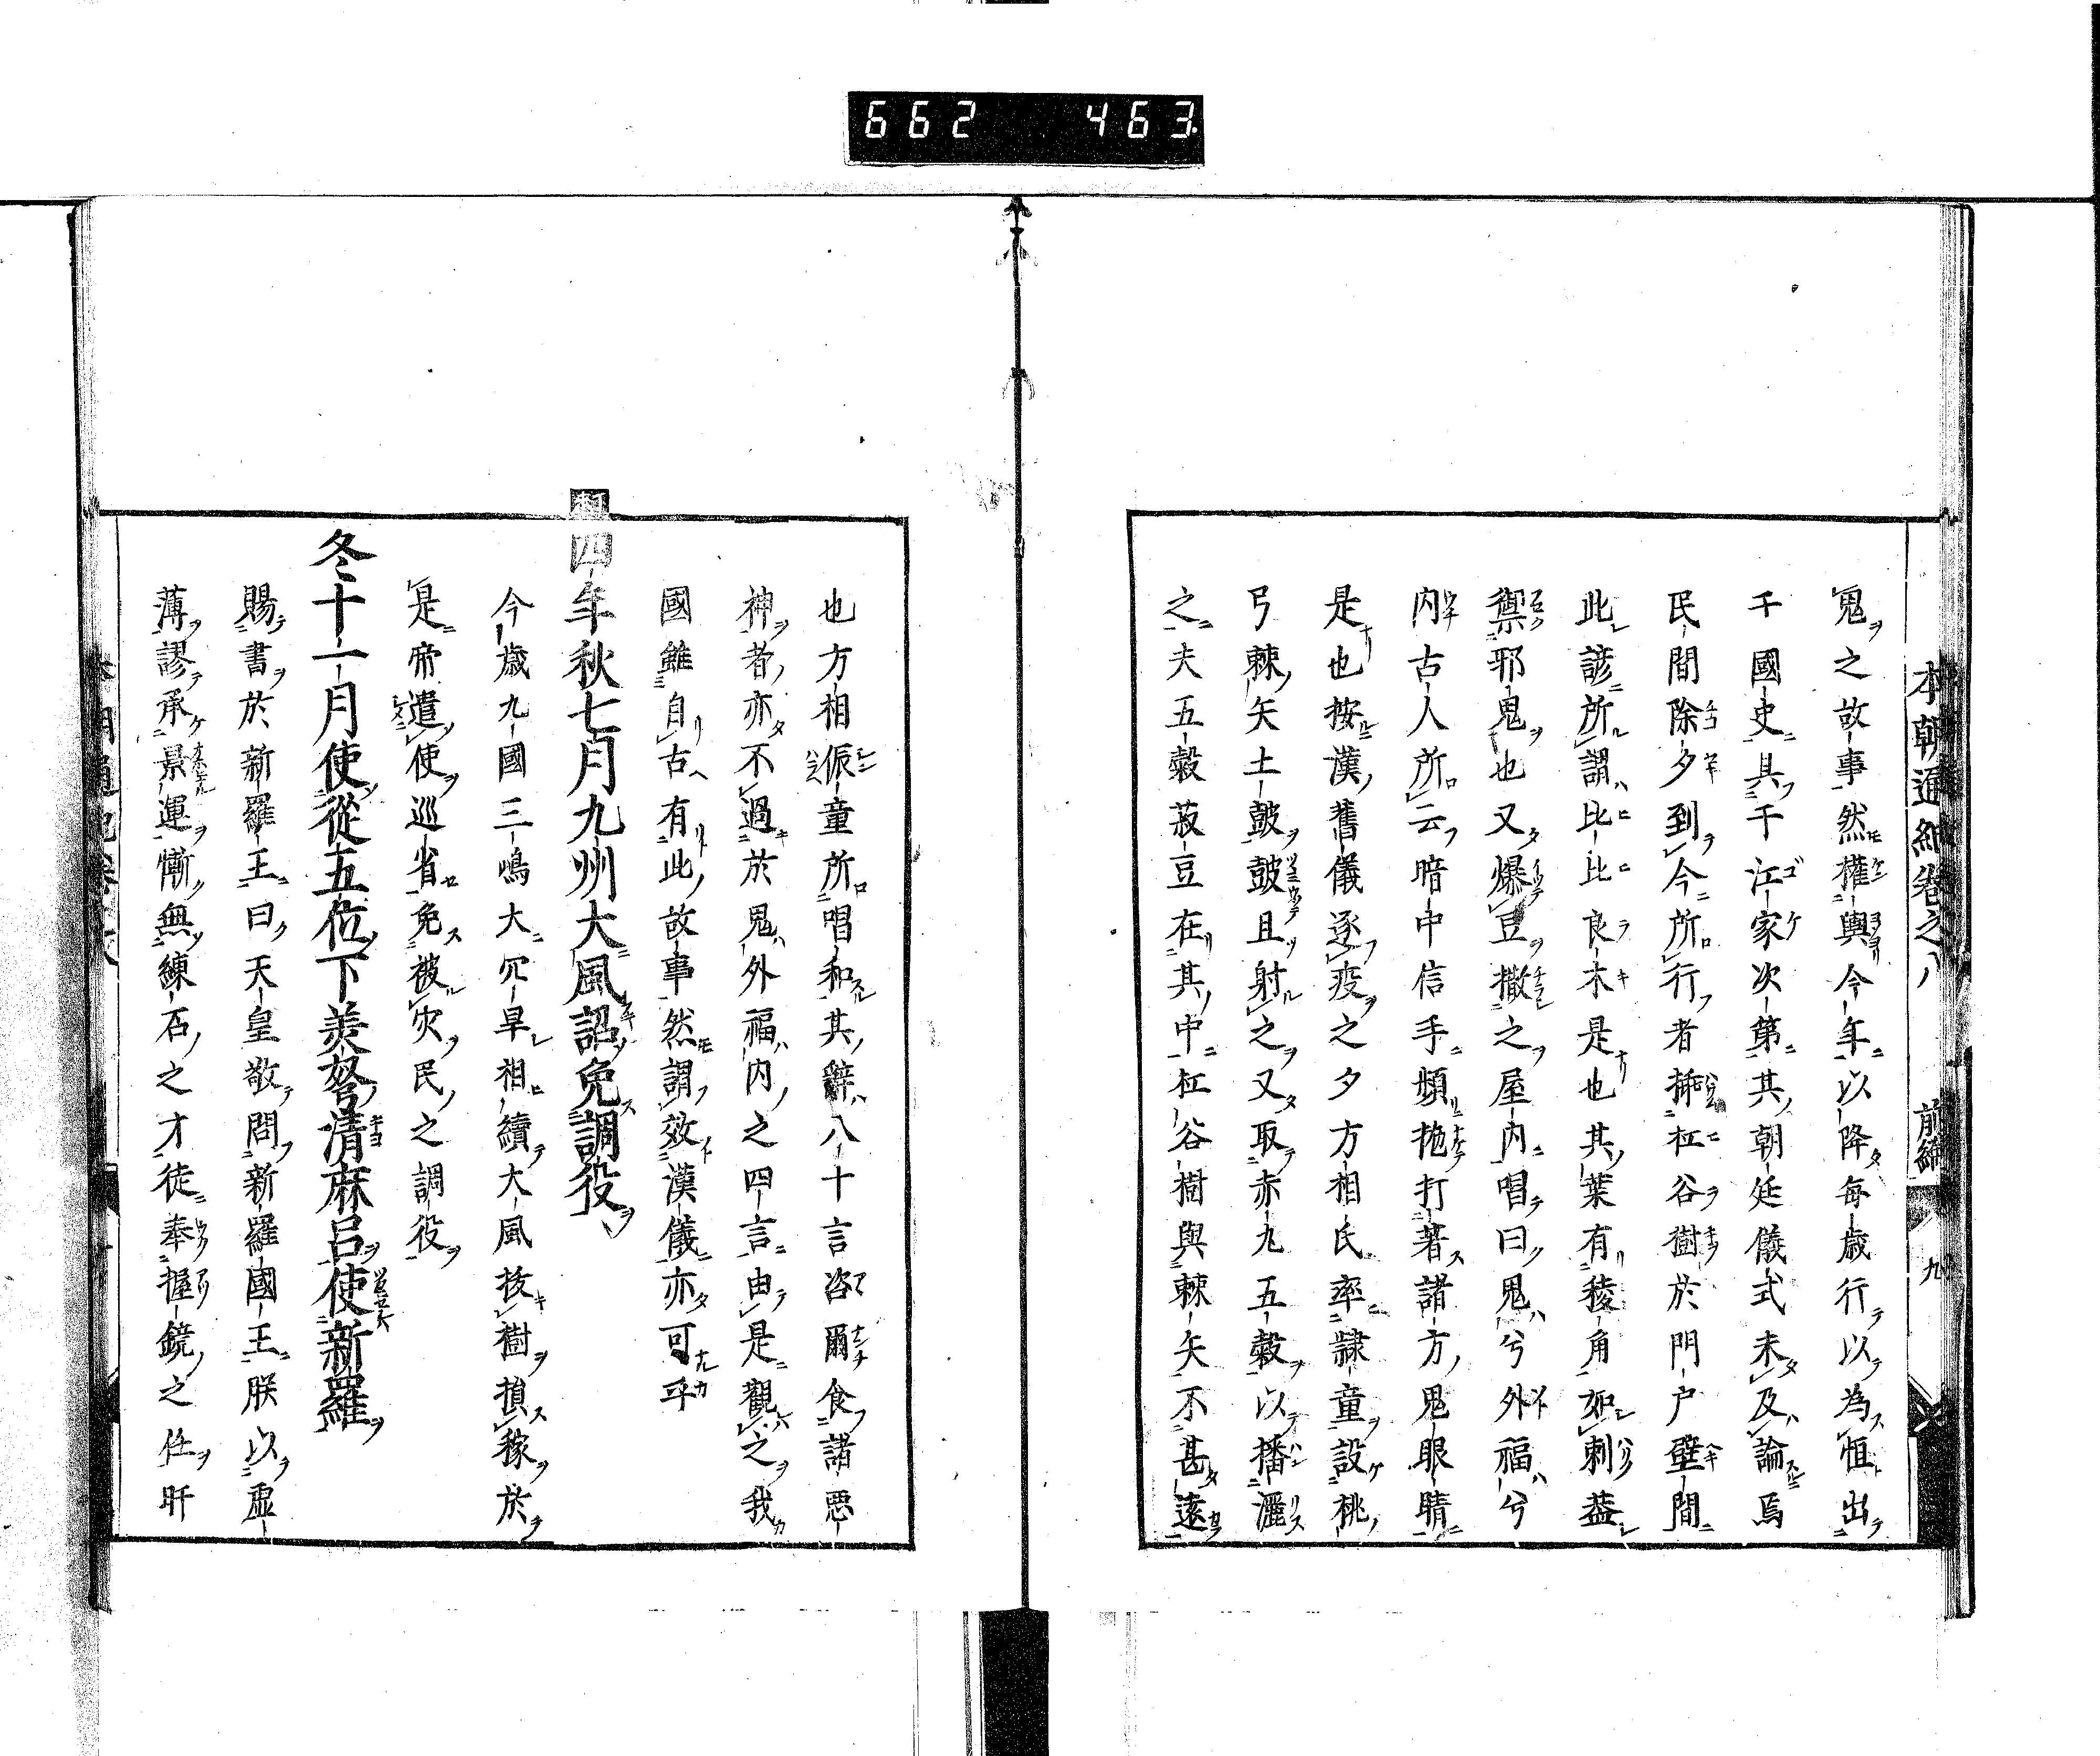 662 463
本朝通紀卷之八 前編 九
鬼之故事然權輿今年以降每歲行以為恒出
千國史具千江家次第其朝廷儀式未及論焉
民間除夕到今所行者挿杠谷樹於門戸壁間
此諺所謂比比良木是也其葉有稜角如刺蓋
禦邪鬼也又爆豆撒之屋内唱曰鬼兮外福兮
内古人所云暗中信手頻拋打著諸方鬼眼睛
是也按漢舊儀逐疫之夕方相氏率隷童設桃
弓棘矢土鼓鼓且射之又取赤丸五穀以播灑
之夫五穀菽豆在其中杠谷樹與棘矢不甚遠
也方相侲童所唱和其辭八十言咨爾食諸惡
神者亦不過於鬼外福内之四言由是觀之我
國雖自古有此故事然謂效漢儀亦可乎
四年秋七月九州大風詔免調役
今歲九國三嶋大灾旱相續大風拔樹損稼於
是帝遣使巡省免被灾民之調役
冬十一月使從五位下美努清麻呂使新羅
賜書於新羅王曰天皇敬問新羅國王朕以虛
薄謬承景運慚無練石之才徒奉握鏡之任旰